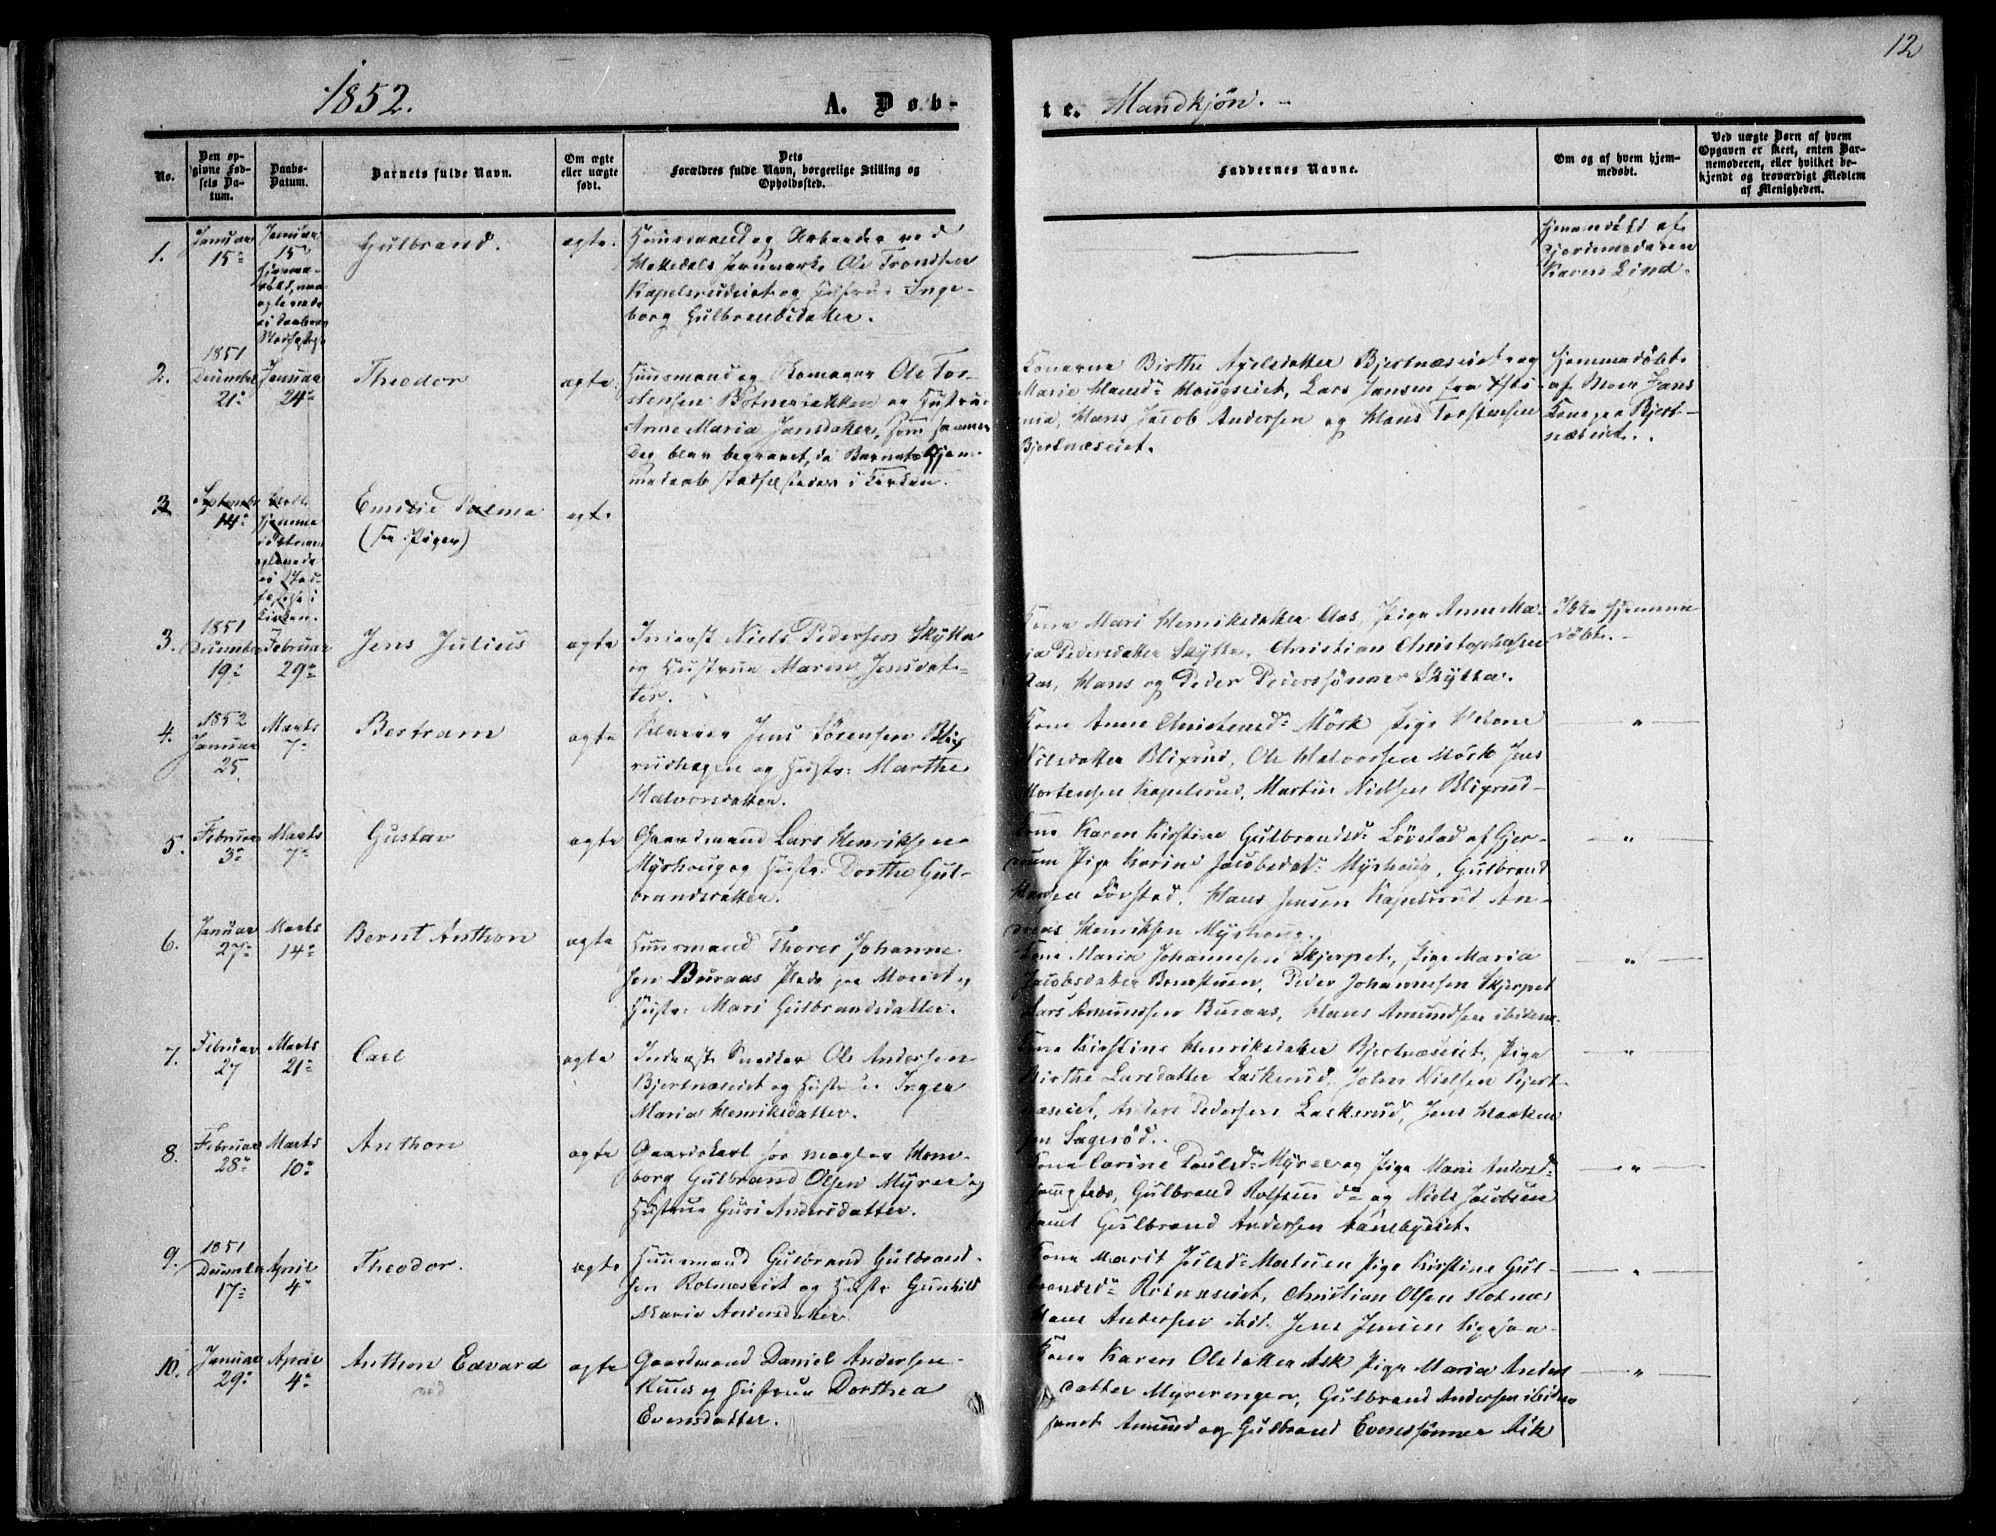 12
1852.
A. Døb-
te. Mandkjøn.
No.
Den op-
givne Fød-
sels Da-
tum.
Daabs-
Datum.
Barnets fulde Navn.
Om ægte
eller uægte
født.
Dets
Forældres fulde Navn, borgerlige Stilling og
Opholdssted.
Faddernes Navne.
Om og af hvem hjem-
medøbt.
Ved uægte Børn af hvem
Opgaven er skeet, enten Bar-
nemoderen, eller hvilket be-
kjendt og troværdigt Medlem
af Menigheden.
1.
Januar
15
Januar
15
Gulbrand.
ægte.
Huusmand og Arbeider ved
Hakedals Jernværk Ole Trondsen
Kapelsrudeiet og Hustrue Inge-
borg Gulbrandsdatter.
Hjemmedøbt af
Jordemoderen
Karen Lind.
2.
1851
December
21
Januar
24
Theodor
ægte.
Huusmand og Skomager Ole Tor-
stensen og Hustrue
Anne Maria Jansdatter, som samme
Dag blev begravet, da Barnets Hjem-
medaab stadfæstedes i Kirken.
Konerne Birthe Axelsdatter Bjertnæseiet og
Marie Haugseiet, Lars Jansen fra
Hans Jacob Andersen og Hans Torstensen
Bjertnæseiet.
Hjemmedøbt
af Moer Jans
Kone paa Bjert-
næseiet.
3
September
14
Emilie Palma
(See Piger)
ægte
Kirken.
3.
1851
December
19
Februar
29
Jens Julius
ægte
Inderst Niels Pedersen Skytta
og Hustrue Maren Jensdat-
ter.
Kone Mari Henriksdatter Aas, Pige Anne Ma-
ria Pedersdatter Skytta, Christian Christophersen
Aas, Hans og Peder Pederssønner Skytta.
Ikke hjemme
døbt.
4.
1852
Januar
25.
Marts
7
Bertram
ægte
Selveier Jens Sørensen Blix
rudhagen og Hustr: Marthe
Halvorsdatter.
Kone Anne Christensd. Mörk Pige Helene
Nilsdatter Blixrud, Ole Halvorsen Mörk Jens
Mortensen Kapelsrud, Martin Nielsen Blixrud
"
5.
Februar
3
Marts
7
Gustav
ægte
Gaardmand Lars Henriksen
Myrhaug og Hustr: Dorthe Gul-
brandsdatter.
Kone Karen Kirstine Gulbrandsd. Lövstad af Gjer-
drum Pige Karine Jacobsdat. Myrhaug, Gulbrand
Hansen Lövstad, Hans Jensen Kapelsrud An-
dreas Henriksen Myrhaug.
"
6.
Januar
27
Marts
14
Bernt Anthon
ægte
Huusmand Thorer Johanne-
sen Buraas Plads paa Moeiet og
Hustr: Mari Gulbrandsdatter.
Kone Maria Johannesen Skjerpet, Pige Maria
Jacobsdatter Peder Johannesen Skjerpet
Lars Amundsen Buraas, Hans Amundsen ibidem.
"
7.
Februar
27
Marts
21
Carl
ægte
Inderst Snedker Ole Andersen
Bjertnæseiet og Hustrue Inger
Maria Henriksdatter.
Kone Kirstine Henriksdatter Bjertnæseiet, Pige
Birthe Larsdatter Laskerud, John Nielsen Bjert-
næseiet, Anders Pedersen Laskerud, Jens Haaken
sen Sageröd.
"
8.
Februar
28
Marts
10
Anthon
ægte
Gaardskarl hos
Gulbrand Olsen Myrer og
Hustrue Guri Andersdatter.
Kone Carine Poulsd. Myrer og Pige Marie Andersd.
Gulbrand Rolfsen do og Niels Jacobsen
samt Gulbrand Andersen Aanebyeiet.
"
9.
1851
December
17
April
4
Theodor.
ægte
Huusmand Gulbrand Gulbrand-
sen Rotnæseiet og Hustr Gunhild
Marie Andersdatter
Kone Marit Julsd. Pige Kirstine Gul-
brandsd. Rotnæseiet, Christian Olsen Rotnæs
Hans Andersen ibid. Jens Jensen
"
10.
Januar
29
April
4
Anthon Edvard
ægte
Gaardmand Daniel Andersen
Ruud og Hustrue Dorthea
Evensdatter.
Kone Karen Olsdatter Ask Pige Maria Anders
datter Myrerengen, Gulbrand Andersen ibidem
samt Amund og Gulbrand Evenssønner Ask
"